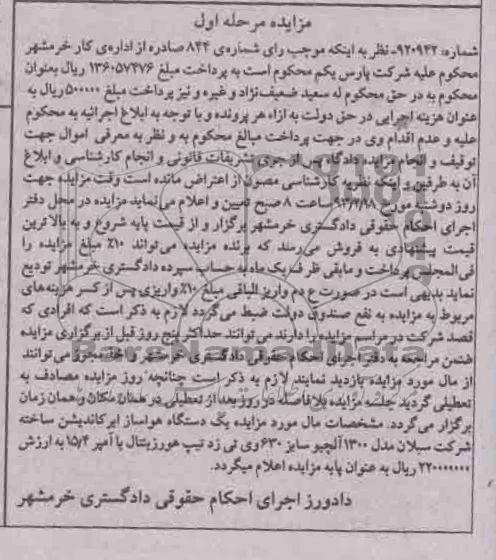 مزایده مرحله اول
شماره: ۹۲۰۹۴۲ـ نظر به اینکه موجب رای شماره‌ی ۸۴۴ صادره از اداره‌ی کار خرمشهر
محکوم علیه شرکت پارس یکم محکوم است به پرداخت مبلغ ۱۳۶۰۵۷۴۷۶ ریال بعنوان
محکوم به در حق محکوم له سعید ضعیف‌نژاد و غیره و نیز پرداخت مبلغ ۵۰۰۰۰۰ ریال به
عنوان هزینه اجرایی در حق دولت به ازاء هر پرونده و با توجه به ابلاغ اجرائیه به محکوم
علیه و عدم اقدام وی در جهت پرداخت مبالغ محکوم به و نظر به معرفی اموال جهت
توقیف و انجام مزایده دادگاه پس از جری تشریفات قانونی و انجام کارشناسی و ابلاغ
آن به طرفین و اینکه نظریه کارشناسی مصون از اعتراض مانده است وقت مزایده جهت
روز دوشنبه مورخ ۹۳/۲/۹۸ ساعت ۸ صبح تعیین و اعلام می‌نماید مزایده در محل دفتر
اجرای احکام حقوقی دادگستری خرمشهر برگزار و از قیمت پایه شروع و به بالاترین
قیمت پیشنهادی به فروش می‌رسند که برنده مزایده می‌تواند ۱۰٪ مبلغ مزایده را
فی‌المجلس پرداخت و مابقی ظرف یک ماه به حساب سپرده دادگستری خرمشهر تودیع
نماید بدیهی است در صورت عدم واریز الباقی مبلغ ۱۰٪ واریزی پس از کسر هزینه‌های
مربوط به مزایده به نفع صندوق دولت ضبط می‌گردد لازم به ذکر است که افرادی که
قصد شرکت در مراسم مزایده را دارند می‌توانند حداکثر پنج روز قبل از برگزاری مزایده
ضمن مراجعه به دفتر اجرای احکام حقوقی دادگستری خرمشهر و اخذ مجوز می‌توانند
از مال مورد مزایده بازدید نمایند لازم به ذکر است چنانچه روز مزایده مصادف به
تعطیلی گردید جلسه مزایده بلافاصله در روز بعد از تعطیلی در همان مکان و همان زمان
برگزار می‌گردد. مشخصات مال مورد مزایده یک دستگاه هواساز ایرکاندیشن ساخته
شرکت سبلان مدل ۱۳۰۰ آلجیو سایز ۶۳۰ وی تی زد تیپ هورزینتال با آمپر ۱۵/۴ به ارزش
۲۲۰۰۰۰۰۰۰ ریال به عنوان پایه مزایده اعلام میگردد.
دادورز اجرای احکام حقوقی دادگستری خرمشهر